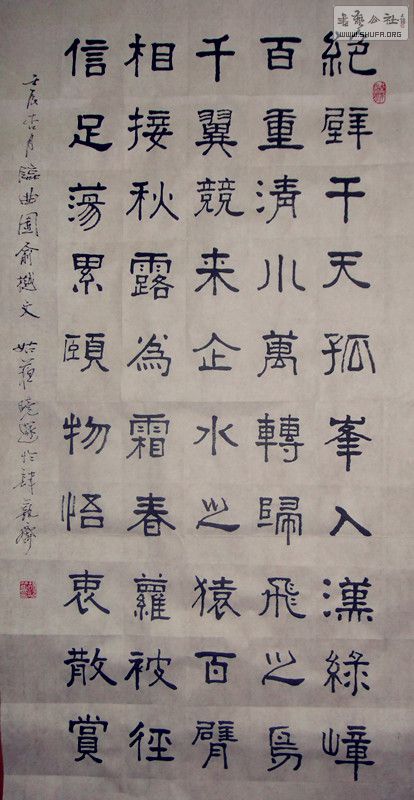 書藝公社
WWW.SHUFA.ORG
絕壁干天孤峯入漢綠嶂
百重清川萬轉歸飛之鳥
千翼競来企水之猿百臂
相接秋露為霜春蘿被徑
信足蕩累頤物悟衷散賞
壬辰杏月臨曲園俞樾文 姑蘇